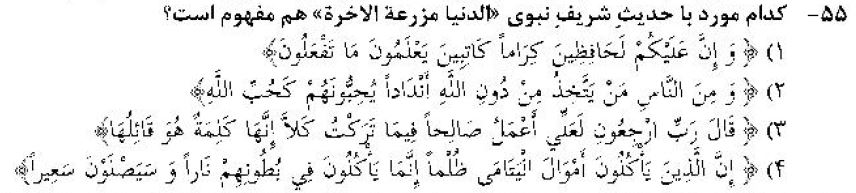 ۵۵- کدام مورد با حدیث شریف نبوی «الدنیا مزرعة الاخرة» هم مفهوم است؟
۱) ﴿وَ إِنَّ عَلَيْكُمْ لَحَافِظِينَ كِرَاماً كَاتِبِينَ يَعْلَمُونَ مَا تَفْعَلُونَ﴾
۲) ﴿وَ مِنَ النَّاسِ مَنْ يَتَّخِذُ مِنْ دُونِ اللَّهِ أَنْدَاداً يُحِبُّونَهُمْ كَحُبِّ اللَّهِ﴾
۳) ﴿قَالَ رَبِّ ارْجِعُونِ لَعَلِّي أَعْمَلُ صَالِحاً فِيمَا تَرَكْتُ كَلاَّ إِنَّهَا كَلِمَةٌ هُوَ قَائِلُهَا﴾
۴) ﴿إِنَّ الَّذِينَ يَأْكُلُونَ أَمْوَالَ الْيَتَامَى ظُلْماً إِنَّمَا يَأْكُلُونَ فِي بُطُونِهِمْ نَاراً وَ سَيَصْلَوْنَ سَعِيراً﴾